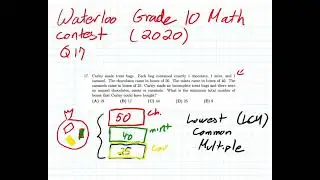 Waterloo Grade 10 Math
contest (2020)
Q 17
17. Carley made treat bags. Each bag contained exactly 1 chocolate, 1 mint, and 1
caramel. The chocolates came in boxes of 50. The mints came in boxes of 40. The
caramels came in boxes of 25. Carley made no incomplete treat bags and there were
no unused chocolates, mints or caramels. What is the minimum total number of
boxes that Carley could have bought?
50 ch.
40 mint
25 car
Lowest (LCM)
Common
Multiple